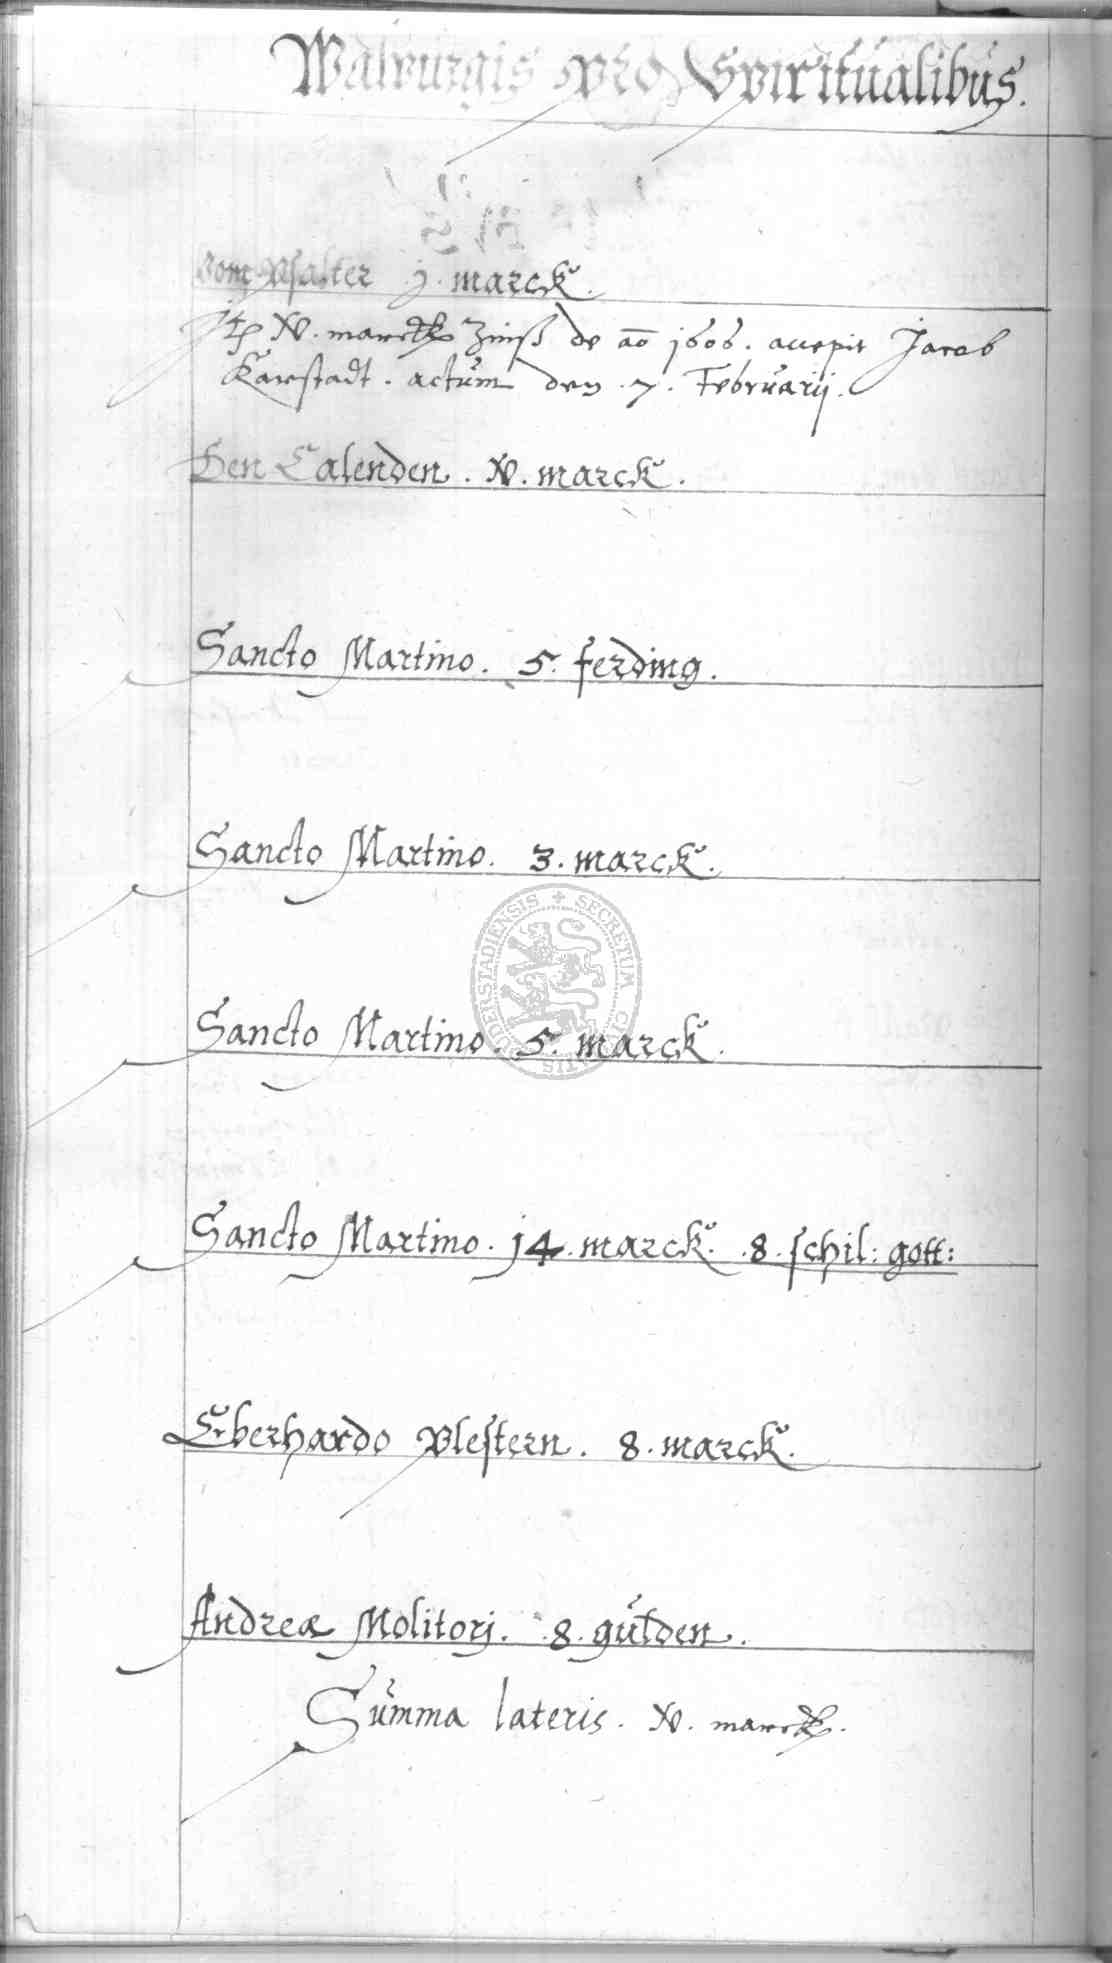 Walpurgis pro Spiritualibus.
Vom Psalter j. marck.
Jtem xv. marck Zinß de ao 1606. accepit Jacob
Karstadt. actum den .7. Februarij.
Den Calenden. xv. marck.
Sancto Martino. 5. ferding.
Sancto Martino. 3. marck.
Sancto Martino. 5. marck.
Sancto Martino. j4. marck. .8. schil: gott:
Eberhardo Plestern. 8. marck.
Andreæ Molitorj. .8. gülden.
Summa lateris. xv. marck.
SECRETUM CIVITATIS DUDERSTADIENSIS